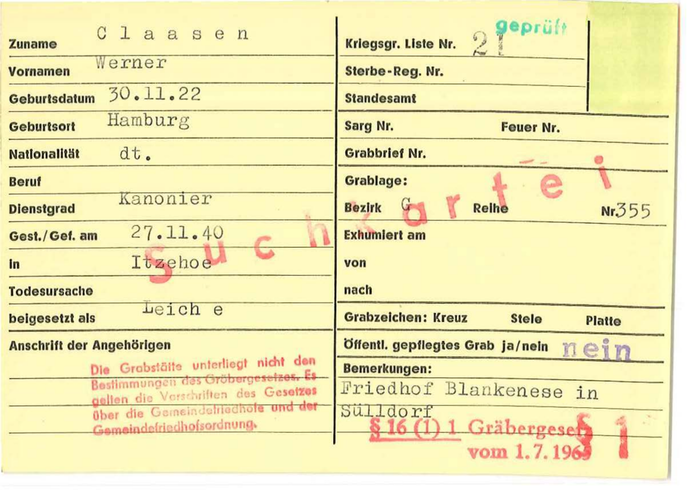 Zuname Claasen
Vornamen Werner
Geburtsdatum 30.11.22
Geburtsort Hamburg
Nationalität dt.
Beruf
Dienstgrad Kanonier
Gest./Gef. am 27.11.40
in Itzehoe
Todesursache
beigesetzt als Leich e
Anschrift der Angehörigen
Die Grabstätte unterliegt nicht den
Bestimmungen des Gräbergesetzes. Es
gelten die Vorschriften des Gesetzes
über die Gemeindefriedhöfe und der
Gemeindefriedhofsordnung.
Suchkartei
geprüft
Kriegsgr. Liste Nr. 21
Sterbe-Reg. Nr.
Standesamt
Sarg Nr. Feuer Nr.
Grabbrief Nr.
Grablage:
Bezirk G Reihe Nr. 355
Exhumiert am
von
nach
Grabzeichen: Kreuz Stele Platte
Öffentl. gepflegtes Grab ja/nein nein
Bemerkungen:
Friedhof Blankenese in
Sülldorf
§ 16 (1) 1 Gräbergesetz
vom 1.7.1965
§ 1